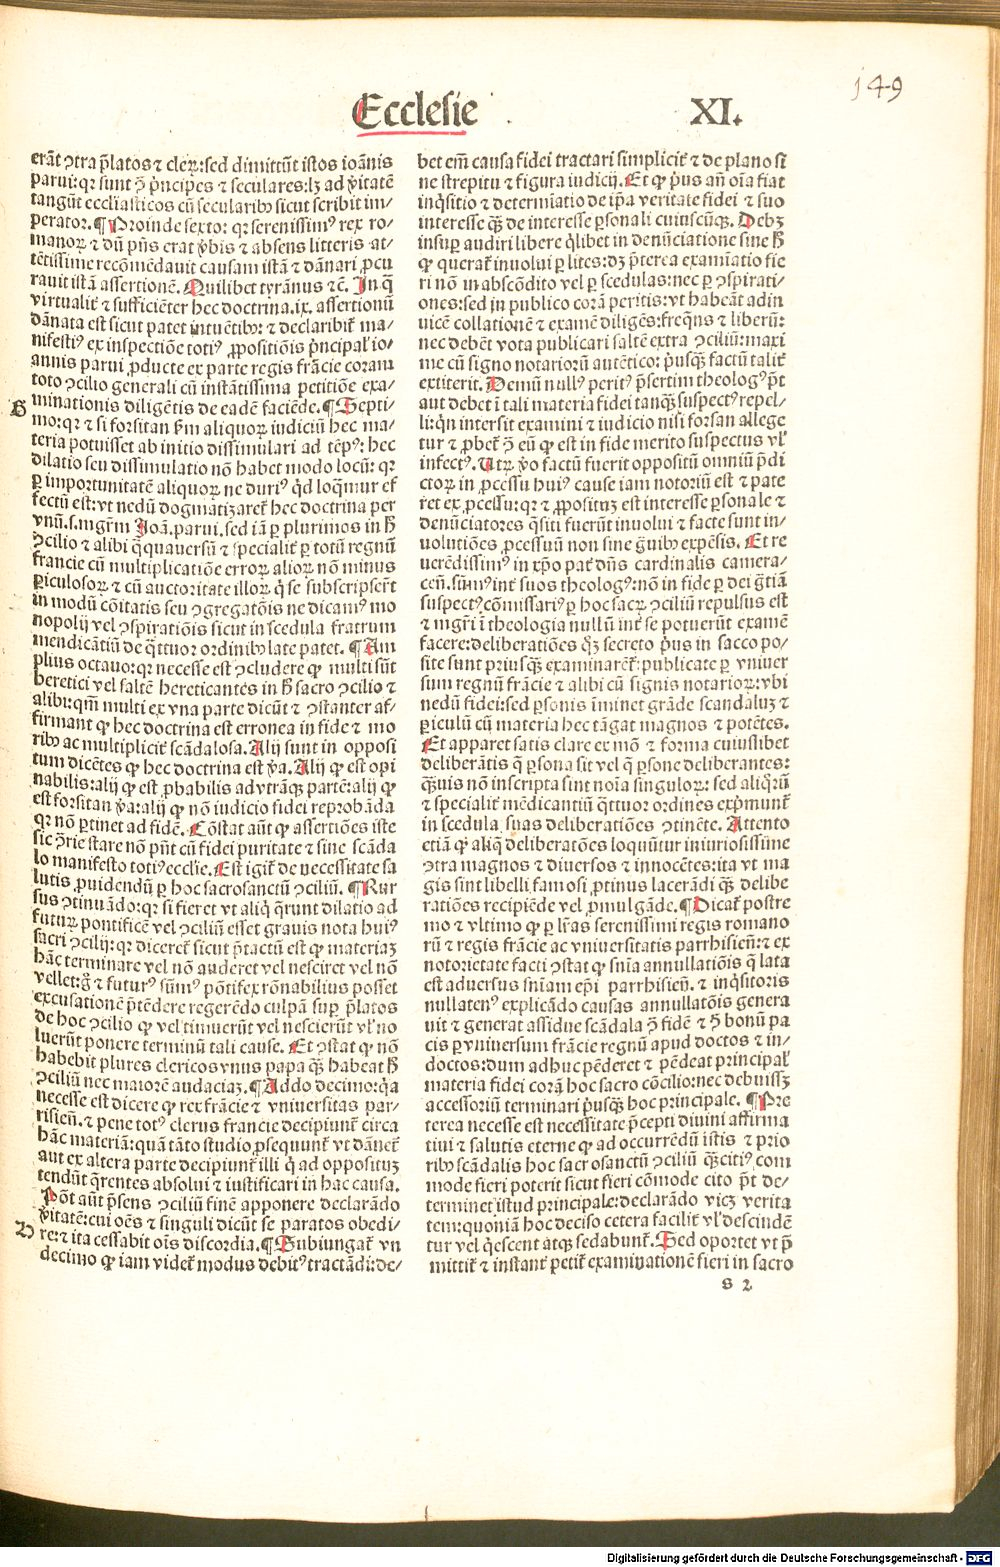 149
Ecclesie XI.
erāt ↄtra p̄latos ⁊ cleꝝ: sed dimittūt istos ioānis
parui: qꝛ sunt ↄ̄ p̄ncipes ⁊ seculares: lꝫ ad v̄itatē
tangūt eccl̄iasticos cū seculariꝰ sicut scribit im/
perator. ¶ Proinde sexto: qꝛ serenissimꝰ rex ro/
manoꝝ ⁊ dū p̄ns erat v̄bis ⁊ absens litteris at/
tētissime recōmēdauit causam istā ⁊ dānari ꝓcu
rauit istā assertionē. Quilibet tyrānus ⁊c̄. In q̄
virtualit̄ ⁊ sufficiēter hec doctrina .ix. assertionū
dānata est sicut patet intuētibꝰ: ⁊ declaribit̄ ma/
nifestiꝰ ex inspectiōe totiꝰ ꝓpositiōis p̄ncipal' io/
annis parui ꝓducte ex parte regis frācie coram
toto ↄcilio generali cū instātissima petitiōe exa/
minationis diligētis de eadē faciēde. ¶ Septi/
G
mo: qꝛ ⁊ si forsitan s̄m aliquoꝝ iudiciū hec ma/
teria potuisset ab initio dissimulari ad tēpꝰ: hec
dilatio seu dissimulatio nō habet modo locū: qꝛ
ꝑ importunitatē aliquoꝝ ne duriꝰ qd̄ loq̄mur ef
fectū est: vt nedū dogmatizaret̄ hec doctrina per
vnū .s. mgr̄m Joā. parui. sed iā ꝑ plurimos in h̄
ↄcilio ⁊ alibi q̄quauersū ⁊ specialit̄ ꝑ totū regnū
francie cū multiplicatiōe erroꝝ alioꝝ nō minus
ꝑiculosoꝝ ⁊ cū auctoritate illoꝝ q̄ se subscripser̄t
in modū cōitatis seu ↄgregatōis ne dicamꝰ mo
nopolij vel ↄspiratiōis sicut in scedula fratrum
mendicātiū de q̄ttuor ordinibꝰ late patet. ¶ Am
plius octauo: qꝛ necesse est ↄcludere ꝙ multi sūt
heretici vel saltē hereticantes in h̄ sacro ↄcilio ⁊
alibi: qm̄ multi ex vna parte dicūt ⁊ ↄstanter af/
firmant ꝙ hec doctrina est erronea in fide ⁊ mo
ribꝰ ac multiplicit̄ scādalosa. Alij sunt in opposi
tum dicētes ꝙ hec doctrina est v̄a. Alij ꝙ est opi
nabilis: alij ꝙ est ꝓbabilis ad vtrāqꝫ partē: alij ꝙ
est forsitan v̄a: alij ꝙ nō iudicio fidei reprobāda
qꝛ nō ꝑtinet ad fidē. Cōstat aūt ꝙ assertiōes iste
sic ↄ̄rie stare nō p̄nt cū fidei puritate ⁊ sine scāda
lo manifesto totiꝰ eccl̄ie. Est igit̄ de necessitate sa
lutis ꝓuidendū ꝑ hoc sacrosanctū ↄciliū. ¶ Rur
sus ↄtinuādo: qꝛ si fieret vt aliq̄ q̄runt dilatio ad
futuꝝ pontificē vel ↄciliū esset grauis nota huiꝰ
sacri ↄcilij: qꝛ diceret̄ sicut p̄tactū est ꝙ materiaꝫ
hāc terminare vel nō auderet vel nesciret vel nō
vellet: gͦ ⁊ futurꝰ sūmꝰ pōtifex rōnabilius posset
excusationē p̄tēdere regerēdo culpā suꝑ p̄latos
de hoc ↄcilio ꝙ vel timuerūt vel nescierūt vl' no
luerūt ponere terminū tali cause. Et ↄstat ꝙ nō
habebit plures clericos vnus papa q̄ꝫ habeat h̄
ↄciliū nec maiorē audaciaꝫ. ¶ Addo decimo: q̄a
necesse est dicere ꝙ rex frācie ⁊ vniuersitas par/
risien̄. ⁊ pene totꝰ clerus francie decipiunt̄ circa
hāc materiā: quā tāto studio ꝓsequunt̄ vt dānet̄
aut ex altera parte decipiunt̄ illi q̄ ad oppositum
tendūt q̄rentes absolui ⁊ iustificari in hac causa.
Pōt aūt p̄sens ↄciliū finē apponere declarādo
v̄itatē: cui oēs ⁊ singuli dicūt se paratos obedi/
H
re: ⁊ ita cessabit oīs discordia. ¶ Subiungat̄ vn
decimo ꝙ iam videt̄ modus debitꝰ tractādi: de/
bet em̄ causa fidei tractari simplicit̄ ⁊ de plano si
ne strepitu ⁊ figura iudicij. Et ꝙ p̄us an̄ oīa fiat
inq̄sitio ⁊ determīatio de ip̄a veritate fidei ⁊ suo
interesse q̄ꝫ de interesse ꝑsonali cuiuscūqꝫ. Debꝫ
insuꝑ audiri libere q̄libet in denūciatione sine h̄
ꝙ querat̄ inuolui ꝑ lites: dꝫ p̄terea examīatio fie
ri nō in abscōdito vel ꝑ scedulas: nec ꝑ ↄspirati/
ones: sed in publico corā peritis: vt habeāt adin
uicē collationē ⁊ examē diligēs: freq̄ns ⁊ liberū:
nec debēt vota publicari saltē extra ↄciliū: maxi
me cū signo notarioꝝ autētico: p̄usq̄ꝫ factū talit̄
extiterit. Demū nullꝰ peritꝰ p̄sertim theologꝰ p̄t
aut debet ī tali materia fidei tanq̄ꝫ suspectꝰ repel/
li: qn̄ intersit examini ⁊ iudicio nisi forsan allege
tur ⁊ ꝓbet̄ ↄ̄ eū ꝙ est in fide merito suspectus vl'
infectꝰ. Utꝝ v̄o factū fuerit oppositū omniū p̄di
ctoꝝ in ꝓcessu huiꝰ cause iam notoriū est ⁊ pate
ret ex ꝓcessu: qꝛ ⁊ ꝓpositum est interesse ꝑsonale ⁊
denūciatores q̄siti fuerūt inuolui ⁊ facte sunt in/
uolutiōes ꝓcessuū non sine ḡuibꝰ expēsis. Et re
uerēdissimꝰ in xp̄o pat̄ dn̄s cardinalis camera/
cen̄. sūmꝰ int̄ suos theologꝰ: nō in fide ꝑ dei gr̄iā
suspectꝰ cōmissariꝰ ꝑ hoc sacꝝ ↄciliū repulsus est
⁊ mgr̄i ī theologia nullū int̄ se potuerūt examē
facere: deliberatiōes q̄ꝫ secreto p̄us in sacco po/
site sunt priusq̄ꝫ examinarēt̄: publicate ꝑ vniuer
sum regnū frācie ⁊ alibi cū signis notarioꝝ: vbi
nedū fidei: sed ꝑsonis īminet grāde scandaluꝫ ⁊
ꝑiculū cū materia hec tāgat magnos ⁊ potētes.
Et apparet satis clare ex mō ⁊ forma cuiuslibet
deliberātis q̄ ꝑsona sit vel q̄ ꝑsone deliberantes:
q̄ꝫuis nō inscripta sint noīa singuloꝝ: sed aliq̄rū
⁊ specialit̄ mēdicantiū q̄ttuor ordines exp̄munt̄
in scedula suas deliberatiōes ↄtinēte. Attento
etiā ꝙ aliq̄ deliberatōes loquūtur iniuriosissime
ↄtra magnos ⁊ diuersos ⁊ innocētes: ita vt ma
gis sint libelli famosi ꝓtinus lacerādi q̄ꝫ delibe
ratiōes recipiēde vel ꝓmulgāde. ¶ Dicat̄ postre
mo ⁊ vltimo ꝙ ꝑ lr̄as serenissimi regis romano
rū ⁊ regis frācie ac vniuersitatis parrhisien̄: ⁊ ex
notorietate facti ↄstat ꝙ sn̄ia annullatiōis q̄ lata
est aduersus sn̄iam ep̄i parrhisien̄. ⁊ inq̄sitoris
nullatenꝰ explicādo causas annullatōis genera
uit ⁊ generat assidue scādala ↄ̄ fidē ⁊ ↄ̄ bonū pa
cis ꝑ vniuersum frācie regnū apud doctos ⁊ in/
doctos: dum adhuc pēderet ⁊ pēdeat principal'
materia fidei corā hoc sacro cōcilio: nec debuissꝫ
accessoriū terminari p̄usq̄ꝫ hoc principale. ¶ Pre
terea necesse est necessitate p̄cepti diuini affirma
tiui ⁊ salutis eterne ꝙ ad occurrēdū istis ⁊ prio
ribꝰ scādalis hoc sacrosanctū ↄciliū q̄ꝫcitiꝰ com
mode fieri poterit sicut fieri cōmode cito p̄t de/
terminet istud principale: declarādo vicꝫ verita
tem: quoniā hoc deciso cetera facilit̄ vl' descindē
tur vel q̄escent atqꝫ sedabunt̄. Sed oportet vt p̄
mittit̄ ⁊ instant̄ petit̄ examinationē fieri in sacro
s 2
Digitalisierung gefördert durch die Deutsche Forschungsgemeinschaft - DFG